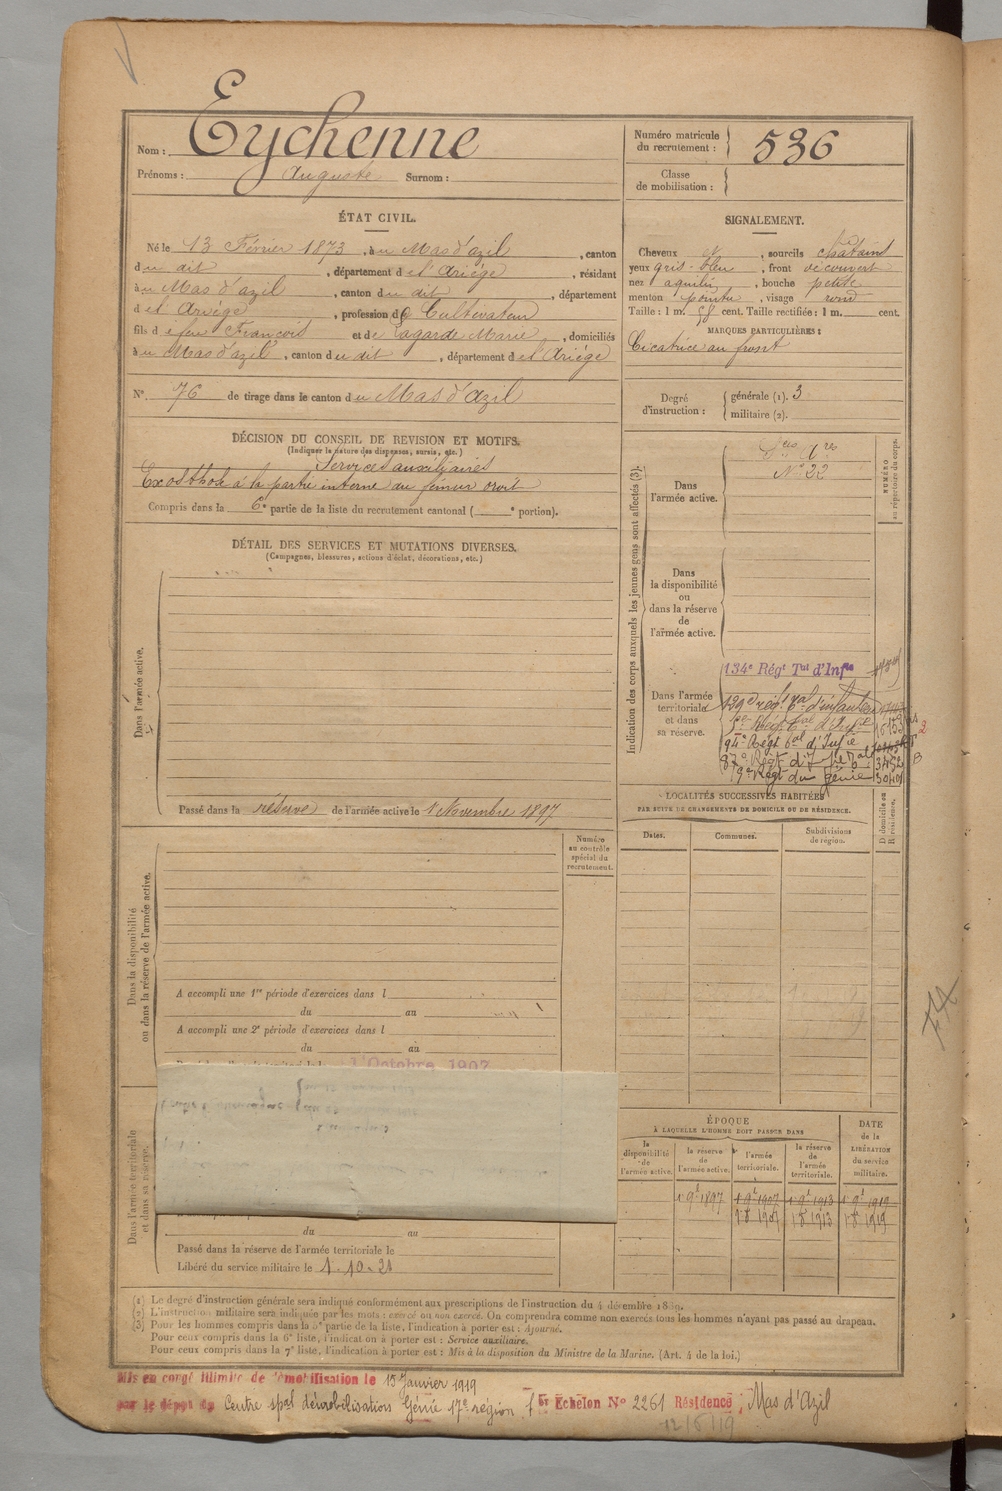 Nom : Eychenne
Prénoms : Auguste Surnom :
Numéro matricule du recrutement : 536
Classe de mobilisation :
ÉTAT CIVIL.
Né le 13 Février 1873, à u Mas d'azil, canton
d u dit, département d e l'Ariège, résidant
à u Mas d'azil, canton d u dit, département
d e l'Ariège, profession de Cultivateur
fils d e feu François et de Lagarde Marie, domiciliés
à u Mas d'azil, canton d u dit, département d e l'Ariège
N° 76 de tirage dans le canton d u Mas d'Azil
SIGNALEMENT.
Cheveux et, sourcils châtains
yeux gris-bleu, front découvert
nez aquilin, bouche petite
menton pointu, visage rond
Taille : 1 m. 58 cent. Taille rectifiée : 1 m. cent.
MARQUES PARTICULIÈRES :
Cicatrice au front
Degré d'instruction : générale (1). 3
militaire (2).
DÉCISION DU CONSEIL DE REVISION ET MOTIFS.
(Indiquer la nature des dispenses, sursis, etc.)
Services auxiliaires
à la partie interne du fémur droit
Compris dans la 6e partie de la liste du recrutement cantonal ( e portion).
DÉTAIL DES SERVICES ET MUTATIONS DIVERSES.
(Campagnes, blessures, actions d'éclat, décorations, etc.)
Dans l'armée active.
Passé dans la réserve de l'armée active le 1 Novembre 1897
Indication des corps auxquels les jeunes gens sont affectés (3).
NUMÉRO au répertoire du corps.
Dans l'armée active.
N° 22
Dans la disponibilité ou dans la réserve de l'armée active.
Dans l'armée territoriale et dans sa réserve.
134e Régt Tal d'Infie
129e régt tal d'infanterie
94e Régt tal d'Infie
87e Régt d'Infie Tale 3452
19e Régt du Génie 3040
LOCALITÉS SUCCESSIVES HABITÉES
PAR SUITE DE CHANGEMENTS DE DOMICILE OU DE RÉSIDENCE.
Dates. Communes. Subdivisions de région.
D domicile ou R résidence.
Numéro au contrôle spécial du recrutement.
Dans la disponibilité ou dans la réserve de l'armée active.
A accompli une 1re période d'exercices dans l
du au
A accompli une 2e période d'exercices dans l
du au
1 Octobre 1907
Dans l'armée territoriale et dans sa réserve.
du au
Passé dans la réserve de l'armée territoriale le
Libéré du service militaire le 1.10.21
ÉPOQUE
À LAQUELLE L'HOMME DOIT PASSER DANS
la disponibilité de l'armée active. la réserve de l'armée active. l'armée territoriale. la réserve de l'armée territoriale.
DATE de la LIBÉRATION du service militaire.
1 9l 1897 1 9l 1907 1 9l 1913 1 9l 1919
1 8 1907 1 8 1913 1 8 1919
(1) Le degré d'instruction générale sera indiqué conformément aux prescriptions de l'instruction du 4 décembre 1889.
(2) L'instruction militaire sera indiquée par les mots : exercé ou non exercé. On comprendra comme non exercés tous les hommes n'ayant pas passé au drapeau.
(3) Pour les hommes compris dans la 5e partie de la liste, l'indication à porter est : Ajourné.
Pour ceux compris dans la 6e liste, l'indication à porter est : Service auxiliaire.
Pour ceux compris dans la 7e liste, l'indication à porter est : Mis à la disposition du Ministre de la Marine. (Art. 4 de la loi.)
Mis en congé illimité de démobilisation le 15 Janvier 1919
par le dépôt du Centre spal démobilisation Génie 17e région Echelon N° 2261 Résidence ; Mas d'Azil
12/5/19